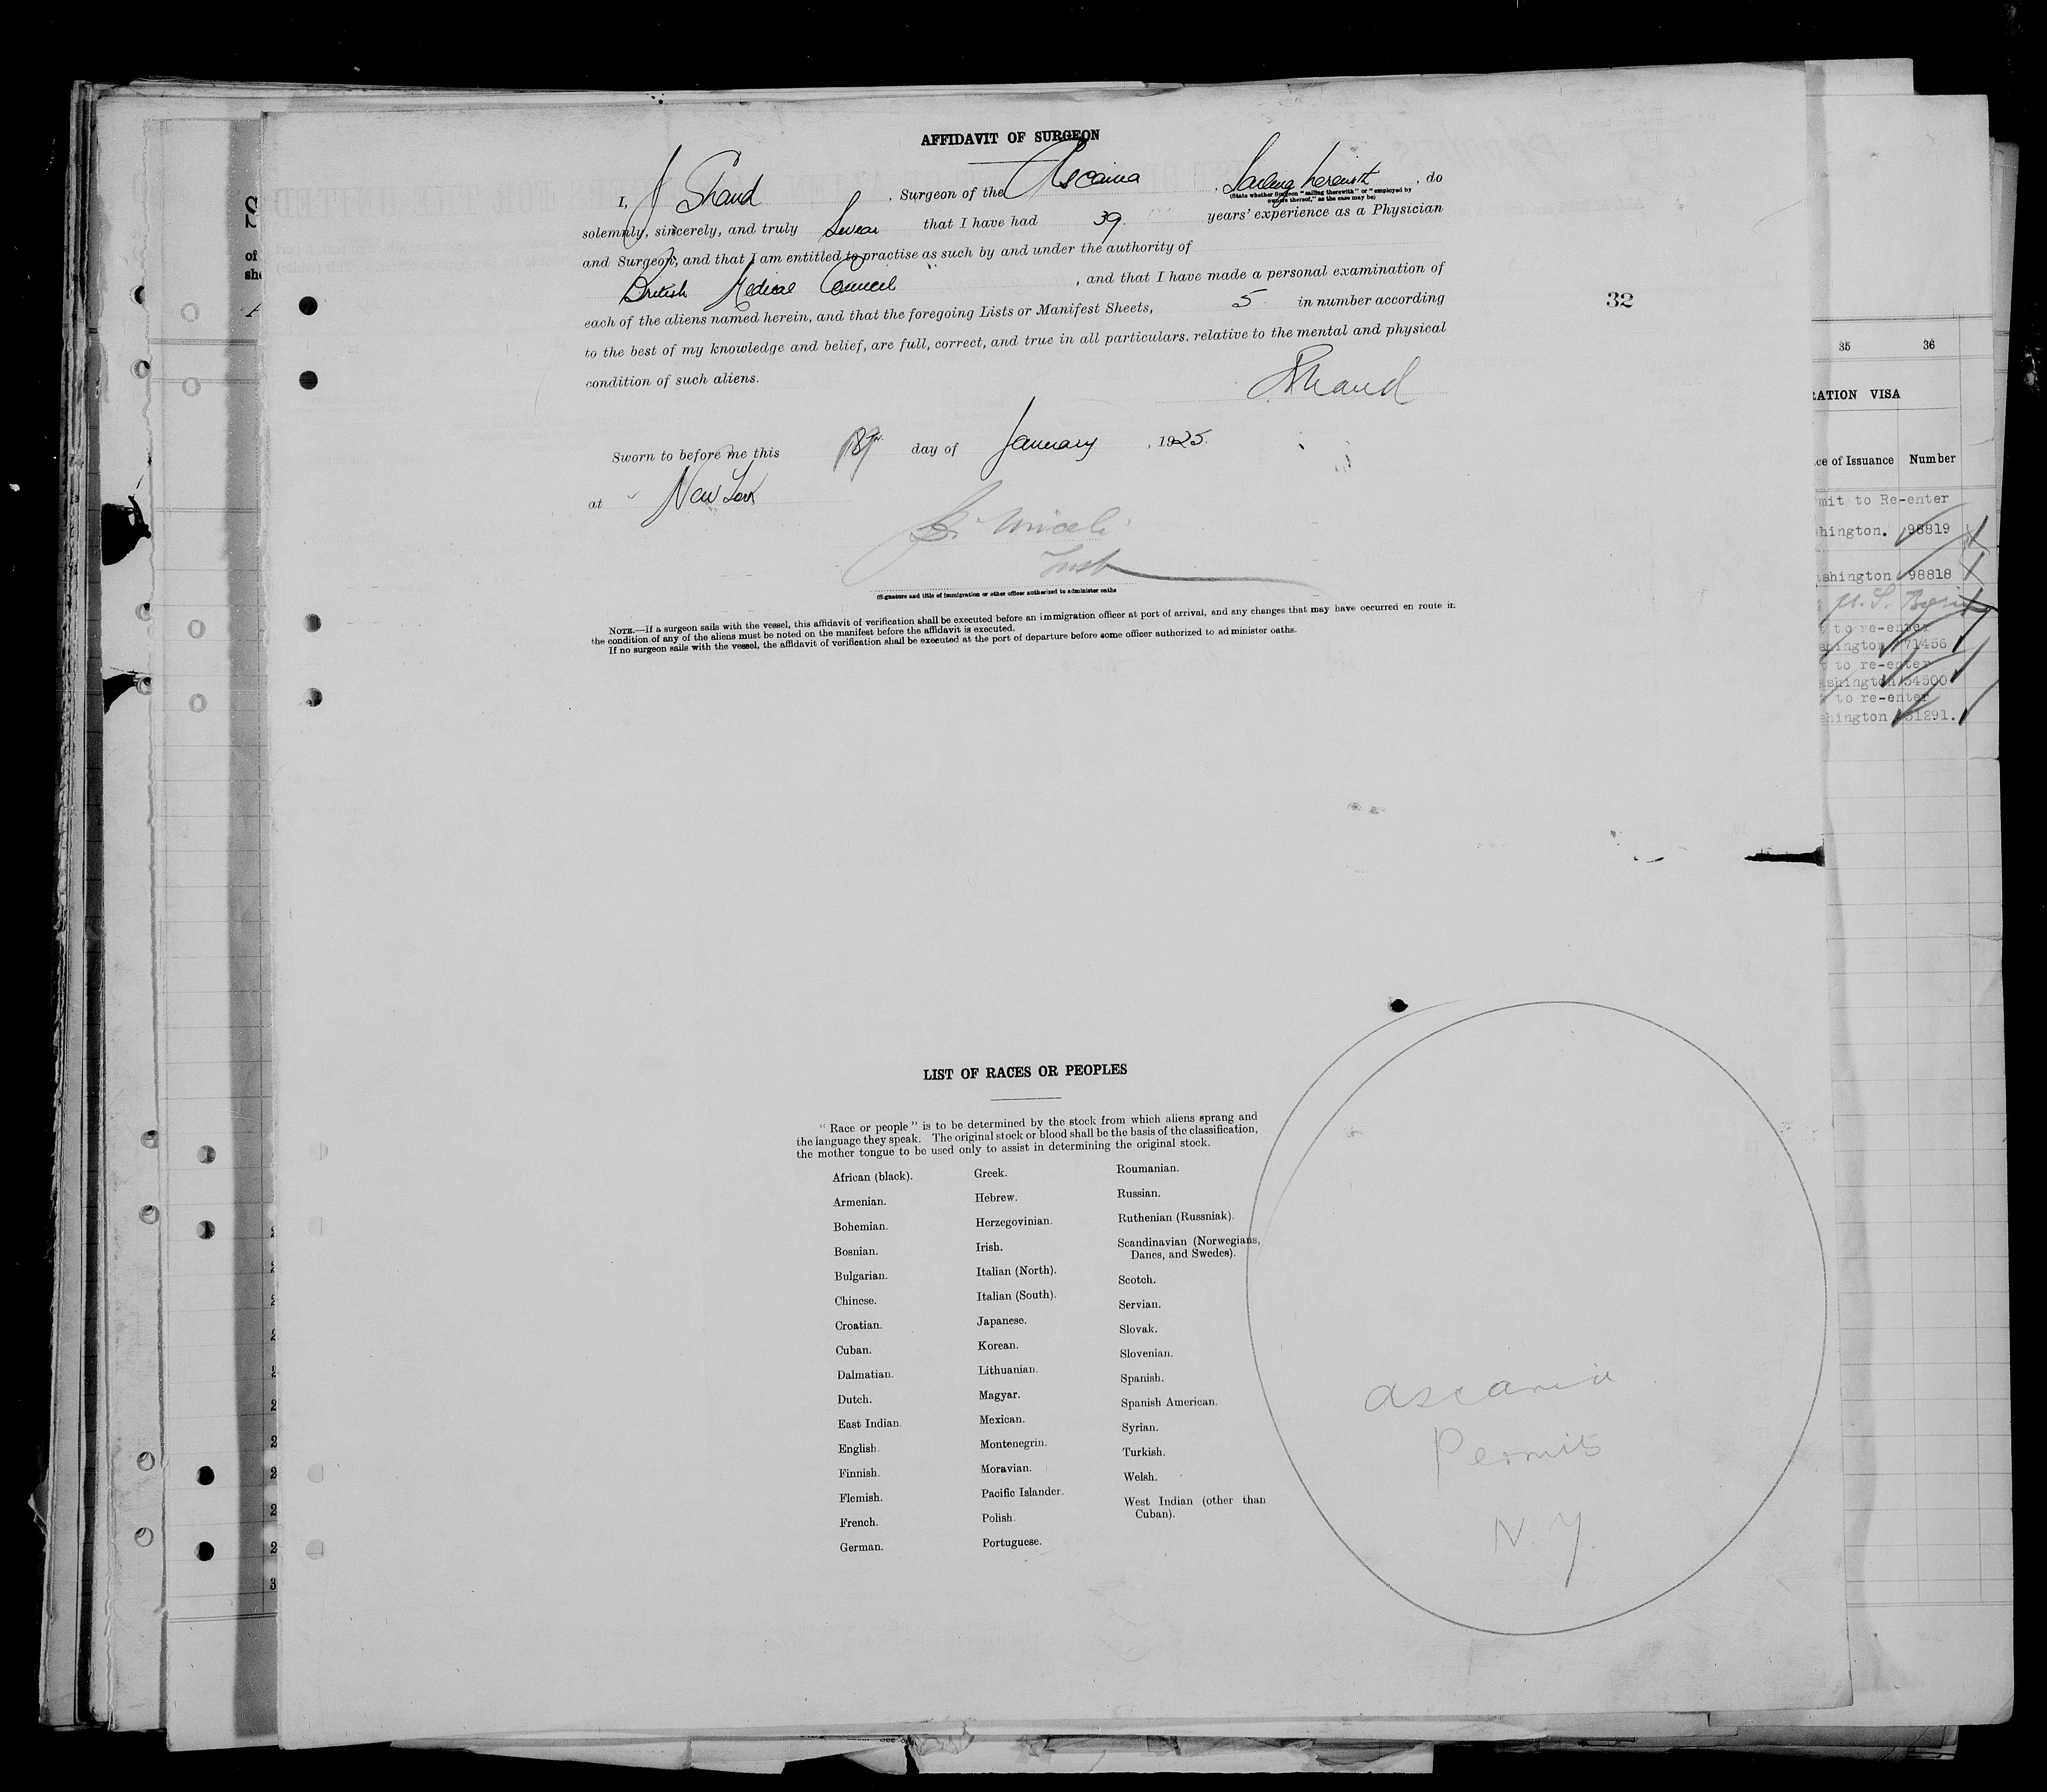 AFFIDAVIT OF SURGEON
I, J Shand, Surgeon of the Ascania, Sailing herewith, do
(State whether Surgeon "sailing therewith" or "employed by
owners thereof," as the case may be)
solemnly, sincerely, and truly Swear that I have had 39 years' experience as a Physician
and Surgeon, and that I am entitled to practise as such by and under the authority of
British Medical Council, and that I have made a personal examination of
each of the aliens named herein, and that the foregoing Lists or Manifest Sheets, 5 in number according
to the best of my knowledge and belief, are full, correct, and true in all particulars. relative to the mental and physical
condition of such aliens.
J Shand
Sworn to before me this day of January, 1925.
at New York
Insp
(Signature and title of immigration or other officer authorized to administer oaths
NOTE.—If a surgeon sails with the vessel, this affidavit of verification shall be executed before an immigration officer at port of arrival, and any changes that may have occurred en route in
the condition of any of the aliens must be noted on the manifest before the affidavit is executed.
If no surgeon sails with the vessel, the affidavit of verification shall be executed at the port of departure before some officer authorized to administer oaths.
32
LIST OF RACES OR PEOPLES
"Race or people" is to be determined by the stock from which aliens sprang and
the language they speak. The original stock or blood shall be the basis of the classification,
the mother tongue to be used only to assist in determining the original stock.
African (black).
Armenian.
Bohemian.
Bosnian.
Bulgarian.
Chinese.
Croatian.
Cuban.
Dalmatian.
Dutch.
East Indian.
English.
Finnish.
Flemish.
French.
German.
Greek.
Hebrew.
Herzegovinian.
Irish.
Italian (North).
Italian (South).
Japanese.
Korean.
Lithuanian.
Magyar.
Mexican.
Montenegrin.
Moravian.
Pacific Islander.
Polish.
Portuguese.
Roumanian.
Russian.
Ruthenian (Russniak).
Scandinavian (Norwegians,
Danes, and Swedes).
Scotch.
Servian.
Slovak.
Slovenian.
Spanish.
Spanish American.
Syrian.
Turkish.
Welsh.
West Indian (other than
Cuban).
Ascania
Permits
N.Y.
35 36
RATION VISA
ce of Issuance Number
mit to Re-enter
hington. 98819
shington 98818
to re-enter
shington 71456
to re-enter
shington 54500
to re-enter
shington 61291.